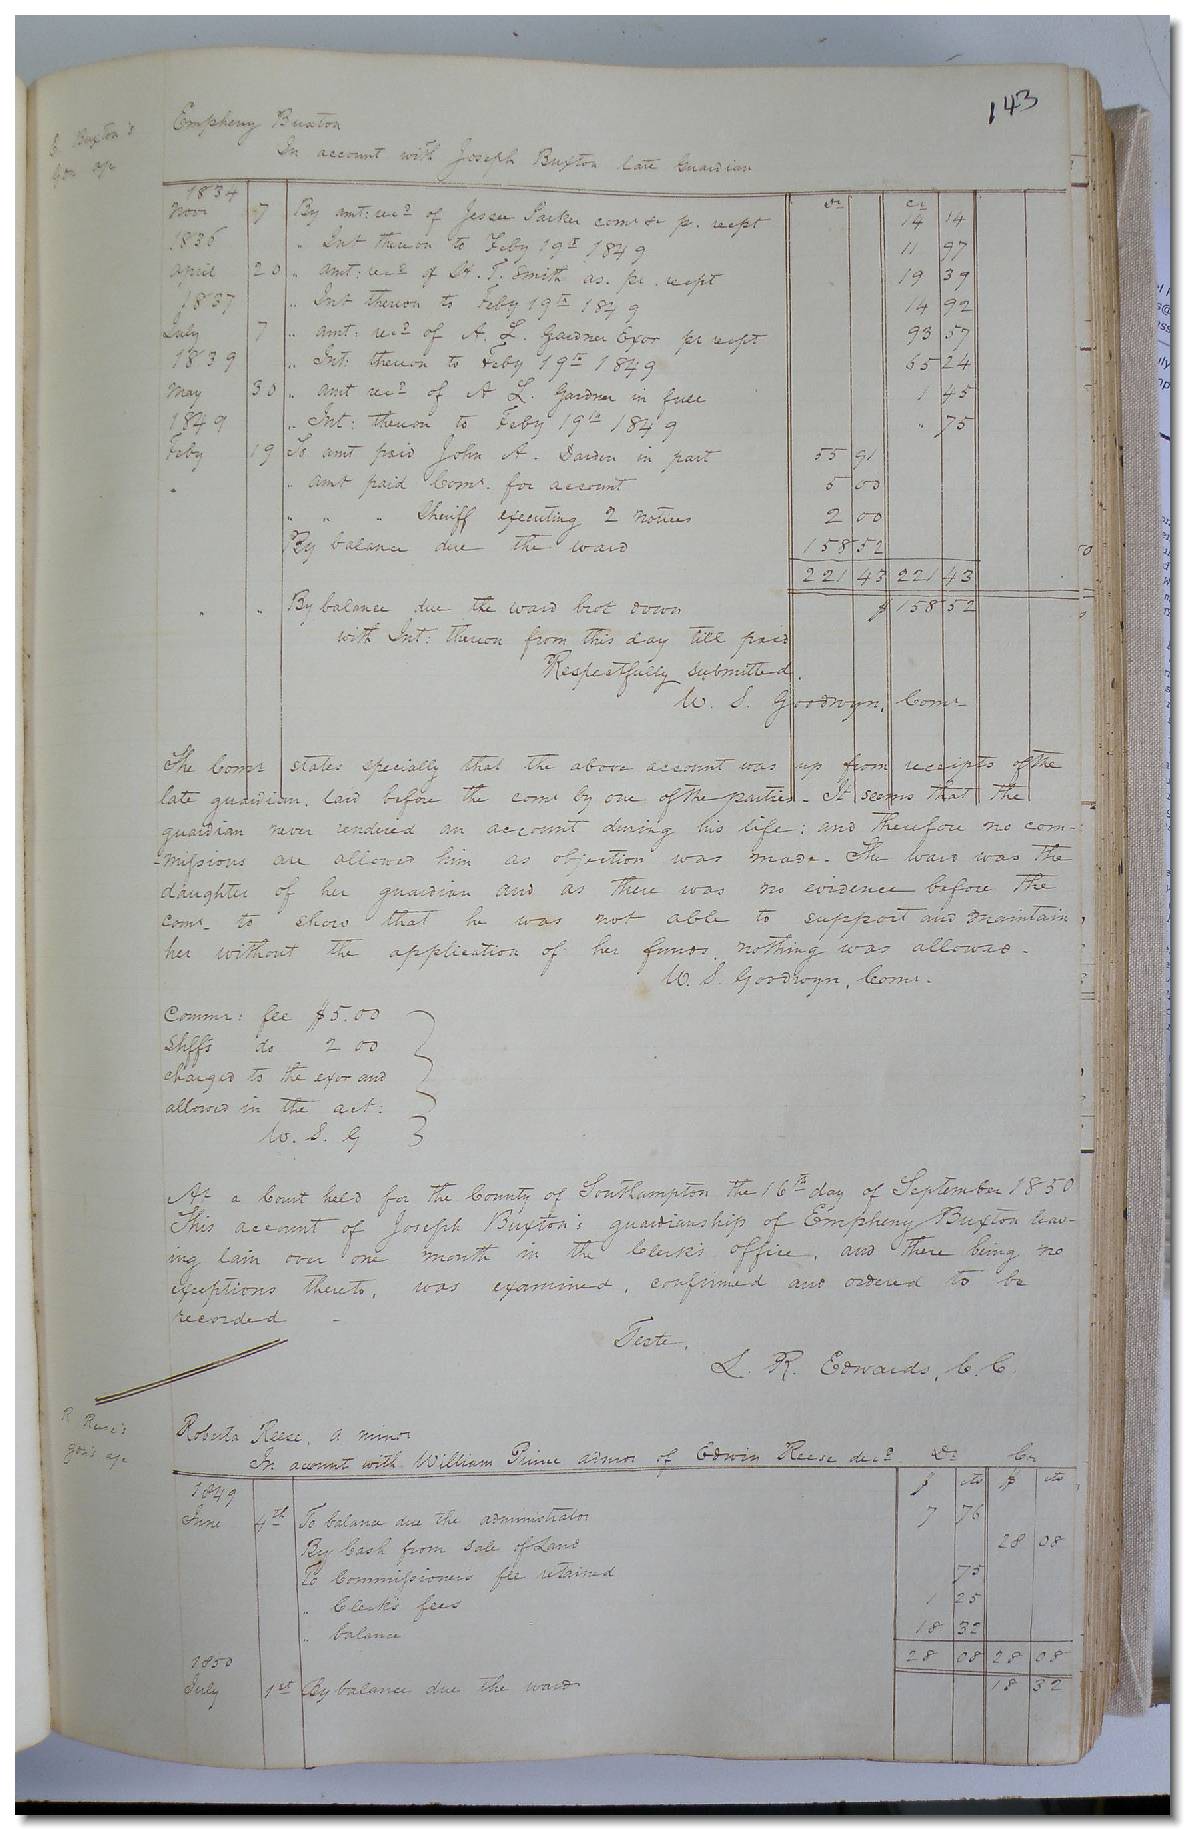 143
E. Buxton's
Gdn a/c
Empheny Buxton
In account with Joseph Buxton late Guardian
1834 Dr Cr
Novr 7 By amt: recd of Jesse Parker comr &c p. recpt 14 14
1836 " Int thereon to Feby 19th 1849 11 97
April 20 " amt: recd of H. T. Smith as. pr. recpt 19 39
1837 " Int thereon to Feby 19th 1849 14 92
July 7 " amt: recd of A. L. Gardner Exor pr recpt 93 57
1839 " Int: thereon to Feby 19th 1849 65 24
May 30 " amt recd of A L. Gardner in full 1 45
1849 " Int: thereon to Feby 19th 1849 " 75
Feby 19 To amt paid John A. Darden in part 55 91
" " amt paid Comr. for account 5 00
" " " Sheriff executing 2 notices 2 00
By balance due the ward 158 52
221 43 221 43
" " By balance due the ward brot down $ 158 52
with Int: thereon from this day till paid
Respectfully submitted.
W. S. Goodwyn, Comr
The Comr states specially that the above account was up from receipts of the
late guardian, laid before the comr by one of the parties - It seems that the
guardian never rendered an account during his life: and therefore no com-
-missions are allowed him as objection was made. The ward was the
daughter of her guardian and as there was no evidence before the
comr. to show that he was not able to support and maintain
her without the application of her funds, nothing was allowed -
W. S. Goodwyn, Comr.
Commr: fee $5.00
Shffs do 2 00
charged to the exor and
allowed in the act:
W. S. G
At a Court held for the County of Southampton the 16th day of September 1850
This account of Joseph Buxton's guardianship of Empheny Buxton hav-
ing lain over one month in the Clerk's office, and there being no
exceptions thereto, was examined, confirmed and ordered to be
recorded -
Teste,
L. R. Edwards, C. C.
R Reese's
gdn's a/c
Roberta Reese, a minor
In account with William Prince admor of Edwin Reese decd Dr Cr
1849 $ cts $ cts
June 4th To balance due the administrator 7 76
By Cash from sale of Land 28 08
To Commissioners fee retained 75
" Clerk's fees 1 25
" balance 18 32
1850 28 08 28 08
July 1st By balance due the ward 18 32